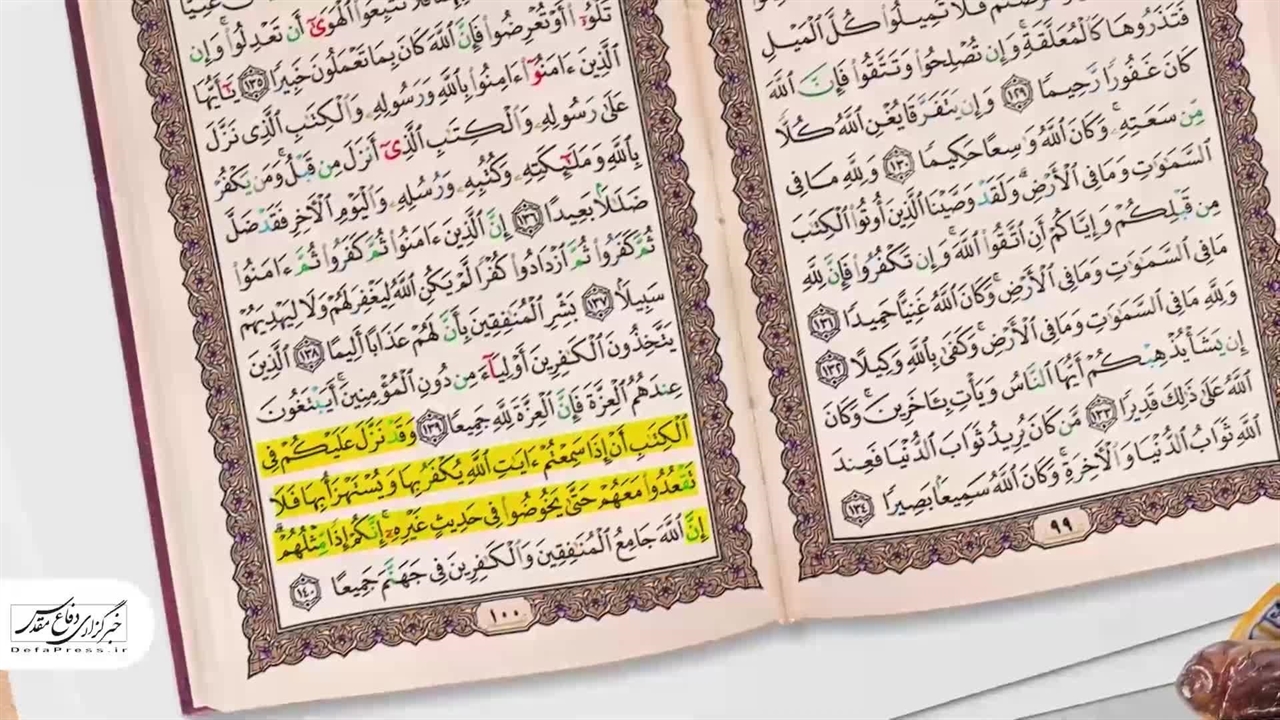 فَلَا تَمِيلُوا۟ كُلَّ ٱلْمَيْلِ
فَتَذَرُوهَا كَٱلْمُعَلَّقَةِ ۚ وَإِن تُصْلِحُوا۟ وَتَتَّقُوا۟ فَإِنَّ ٱللَّهَ
كَانَ غَفُورًا رَّحِيمًا ١٢٩ وَإِن يَتَفَرَّقَا يُغْنِ ٱللَّهُ كُلًّا
مِّن سَعَتِهِۦ ۚ وَكَانَ ٱللَّهُ وَٰسِعًا حَكِيمًا ١٣٠ وَلِلَّهِ مَا فِى
ٱلسَّمَٰوَٰتِ وَمَا فِى ٱلْأَرْضِ ۗ وَلَقَدْ وَصَّيْنَا ٱلَّذِينَ أُوتُوا۟ ٱلْكِتَٰبَ
مِن قَبْلِكُمْ وَإِيَّاكُمْ أَنِ ٱتَّقُوا۟ ٱللَّهَ ۚ وَإِن تَكْفُرُوا۟ فَإِنَّ لِلَّهِ
مَا فِى ٱلسَّمَٰوَٰتِ وَمَا فِى ٱلْأَرْضِ ۚ وَكَانَ ٱللَّهُ غَنِيًّا حَمِيدًا ١٣١
وَلِلَّهِ مَا فِى ٱلسَّمَٰوَٰتِ وَمَا فِى ٱلْأَرْضِ ۚ وَكَفَىٰ بِٱللَّهِ وَكِيلًا ١٣٢
إِن يَشَأْ يُذْهِبْكُمْ أَيُّهَا ٱلنَّاسُ وَيَأْتِ بِـَٔاخَرِينَ ۚ وَكَانَ
ٱللَّهُ عَلَىٰ ذَٰلِكَ قَدِيرًا ١٣٣ مَّن كَانَ يُرِيدُ ثَوَابَ ٱلدُّنْيَا فَعِندَ
ٱللَّهِ ثَوَابُ ٱلدُّنْيَا وَٱلْـَٔاخِرَةِ ۚ وَكَانَ ٱللَّهُ سَمِيعًۢا بَصِيرًا ١٣٤
٩٩
فَلَا تَتَّبِعُوا۟ ٱلْهَوَىٰٓ أَن تَعْدِلُوا۟ ۚ وَإِن
تَلْوُۥٓا۟ أَوْ تُعْرِضُوا۟ فَإِنَّ ٱللَّهَ كَانَ بِمَا تَعْمَلُونَ خَبِيرًا ١٣٥ يَٰٓأَيُّهَا
ٱلَّذِينَ ءَامَنُوٓا۟ ءَامِنُوا۟ بِٱللَّهِ وَرَسُولِهِۦ وَٱلْكِتَٰبِ ٱلَّذِى نَزَّلَ
عَلَىٰ رَسُولِهِۦ وَٱلْكِتَٰبِ ٱلَّذِىٓ أَنزَلَ مِن قَبْلُ ۚ وَمَن يَكْفُرْ
بِٱللَّهِ وَمَلَٰٓئِكَتِهِۦ وَكُتُبِهِۦ وَرُسُلِهِۦ وَٱلْيَوْمِ ٱلْـَٔاخِرِ فَقَدْ ضَلَّ
ضَلَٰلًۢا بَعِيدًا ١٣٦ إِنَّ ٱلَّذِينَ ءَامَنُوا۟ ثُمَّ كَفَرُوا۟ ثُمَّ ءَامَنُوا۟
ثُمَّ كَفَرُوا۟ ثُمَّ ٱزْدَادُوا۟ كُفْرًا لَّمْ يَكُنِ ٱللَّهُ لِيَغْفِرَ لَهُمْ وَلَا لِيَهْدِيَهُمْ
سَبِيلًۢا ١٣٧ بَشِّرِ ٱلْمُنَٰفِقِينَ بِأَنَّ لَهُمْ عَذَابًا أَلِيمًا ١٣٨ ٱلَّذِينَ
يَتَّخِذُونَ ٱلْكَٰفِرِينَ أَوْلِيَآءَ مِن دُونِ ٱلْمُؤْمِنِينَ ۚ أَيَبْتَغُونَ
عِندَهُمُ ٱلْعِزَّةَ فَإِنَّ ٱلْعِزَّةَ لِلَّهِ جَمِيعًا ١٣٩ وَقَدْ نَزَّلَ عَلَيْكُمْ فِى
ٱلْكِتَٰبِ أَنْ إِذَا سَمِعْتُمْ ءَايَٰتِ ٱللَّهِ يُكْفَرُ بِهَا وَيُسْتَهْزَأُ بِهَا فَلَا
تَقْعُدُوا۟ مَعَهُمْ حَتَّىٰ يَخُوضُوا۟ فِى حَدِيثٍ غَيْرِهِۦٓ ۚ إِنَّكُمْ إِذًا مِّثْلُهُمْ ۗ
إِنَّ ٱللَّهَ جَامِعُ ٱلْمُنَٰفِقِينَ وَٱلْكَٰفِرِينَ فِى جَهَنَّمَ جَمِيعًا ١٤٠
١٠٠
خبرگزاری دفاع مقدس
DefaPress.ir